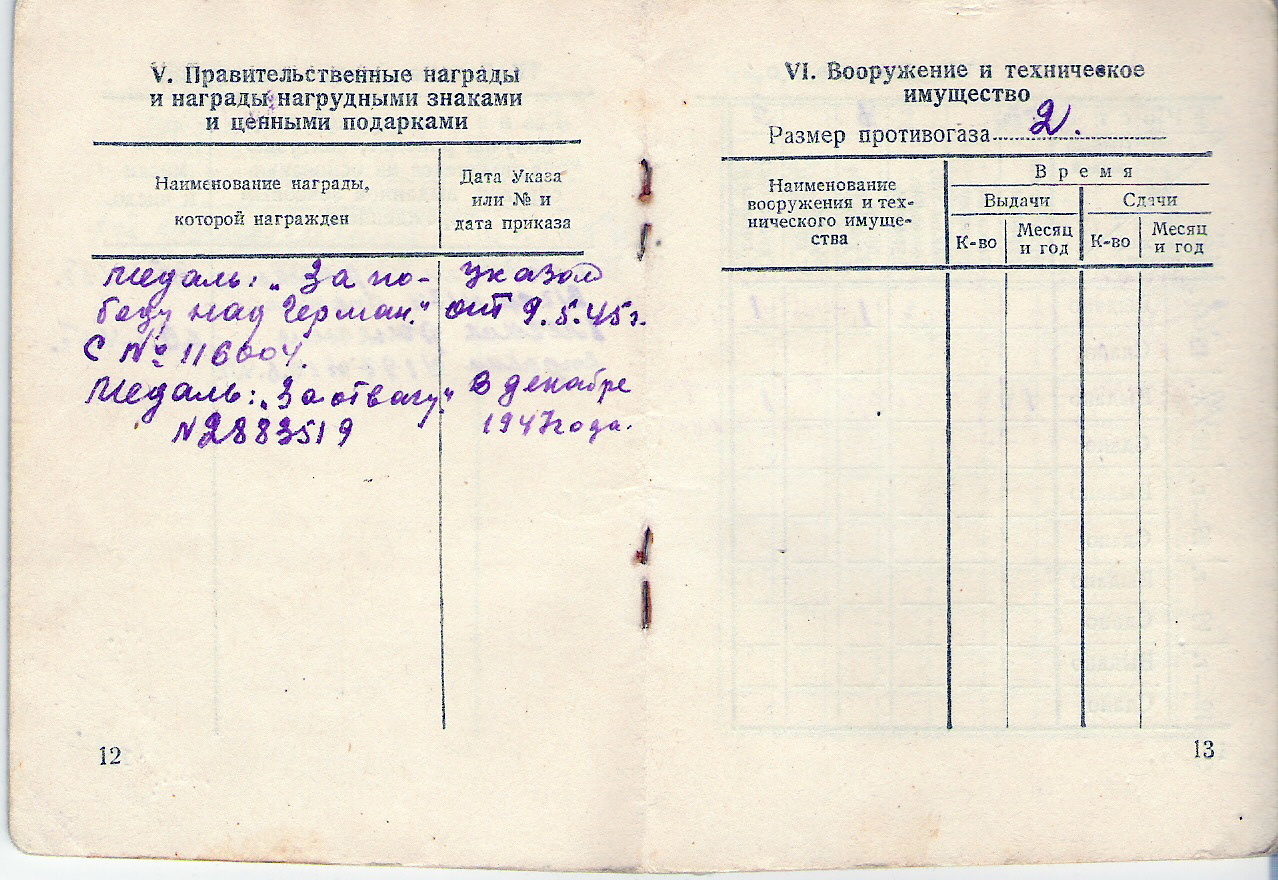 V. Правительственные награды
и награды нагрудными знаками
и ценными подарками
Наименование награды,
которой награжден
Дата Указа
или № и
дата приказа
Медаль: „За по-
беду над Герман."
С № 116004.
Указом
от 9.5.45г.
Медаль: „За отвагу"
N2883519
В декабре
1947 года.
12
VI. Вооружение и техническое
имущество
Размер противогаза 2.
Наименование
вооружения и тех-
нического имуще-
ства
Время
Выдачи
Сдачи
К-во
Месяц
и год
К-во
Месяц
и год
13